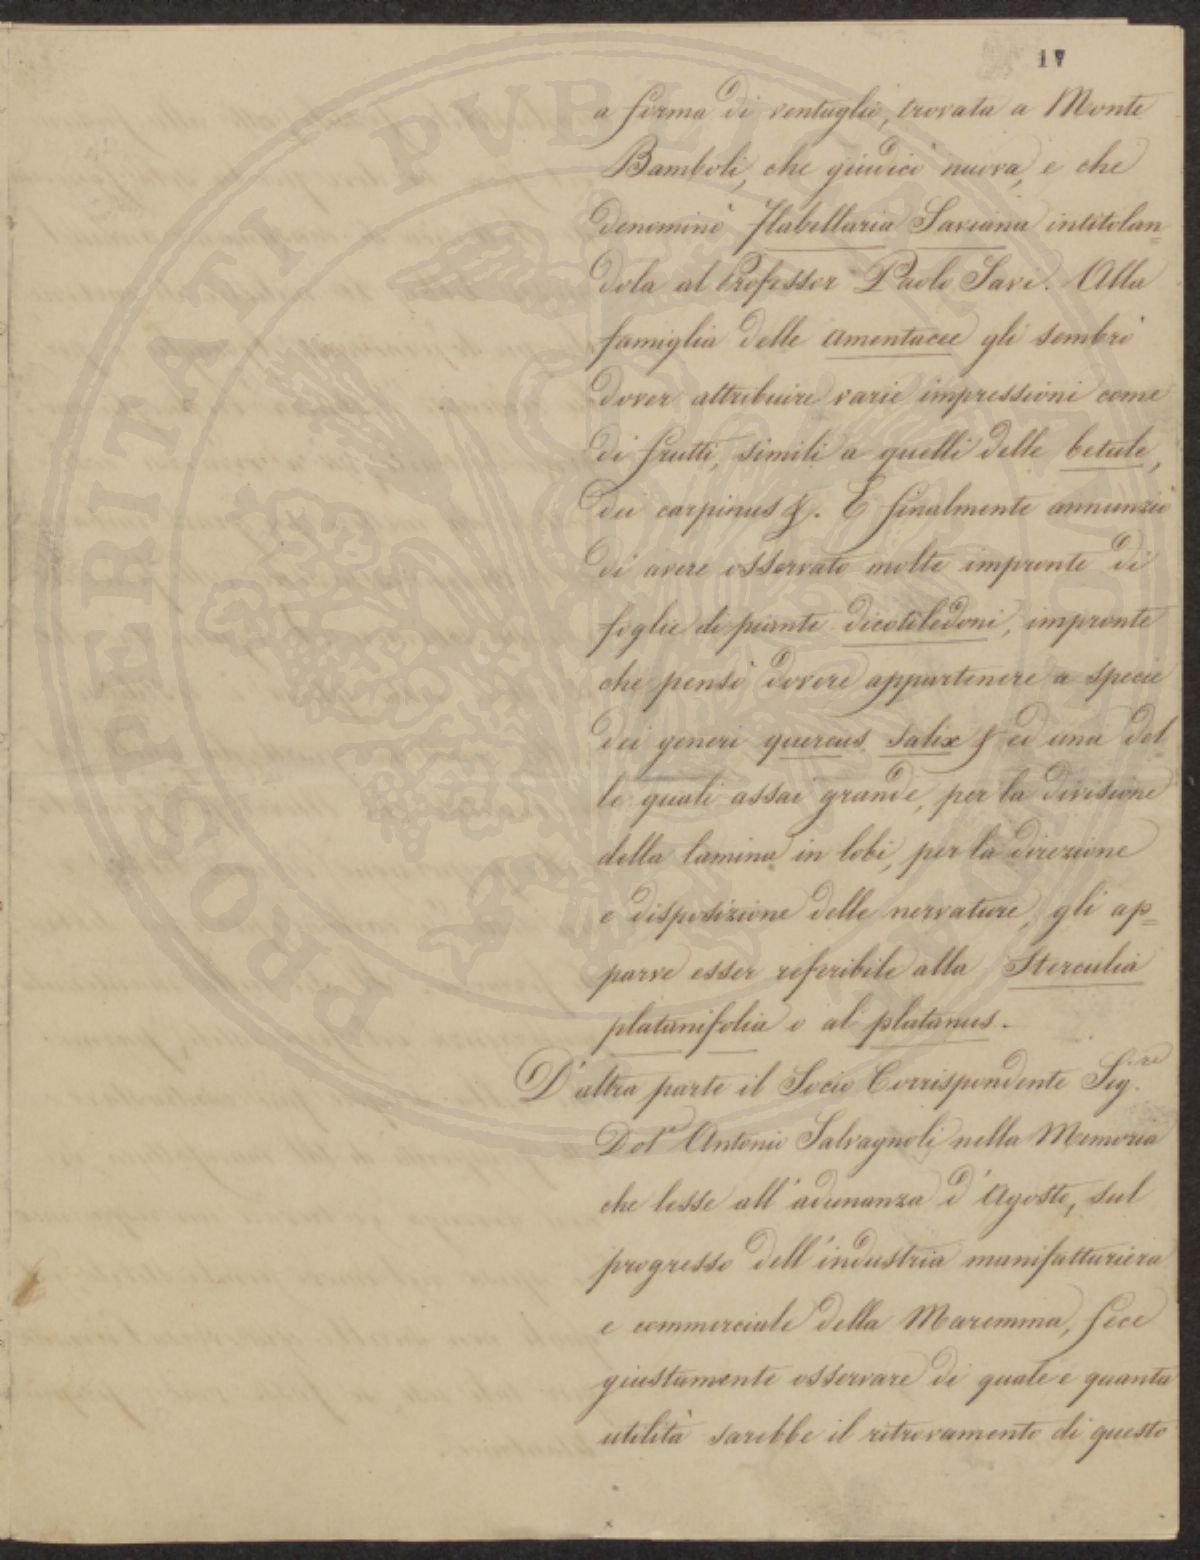 17
a forma di ventaglio, trovata a Monte
Bamboli, che giudicò nuova, e che
denominò Flabellaria Saviana intitolan=
dola al Professor Paolo Savi. Alla
famiglia delle amentacee gli sembrò
dover attribuire varie impressioni come
di frutti, simili a quelli delle betule,
dei carpinus &. E finalmente annunziò
di avere osservato molte impronte di
foglie di piante dicotiledoni, impronte
che pensò dovere appartenere a specie
dei generi quercus, salix & ed una del=
le quali assai grande, per la divisione
della lamina in lobi, per la direzione
e disposizione delle nervature, gli ap=
parve esser referibile alla Sterculia
platanifolia o al platanus.
D'altra parte il Socio Corrispondente Sig.re
Dotr Antonio Salvagnoli nella Memoria
che lesse all'adunanza d'Agosto, sul
progresso dell'industria manifatturiera
e commerciale della Maremma, fece
giustamente osservare di quale e quanta
utilità sarebbe il ritrovamento di questo
PROSPERITATI PVBLICAE AVGENDAE